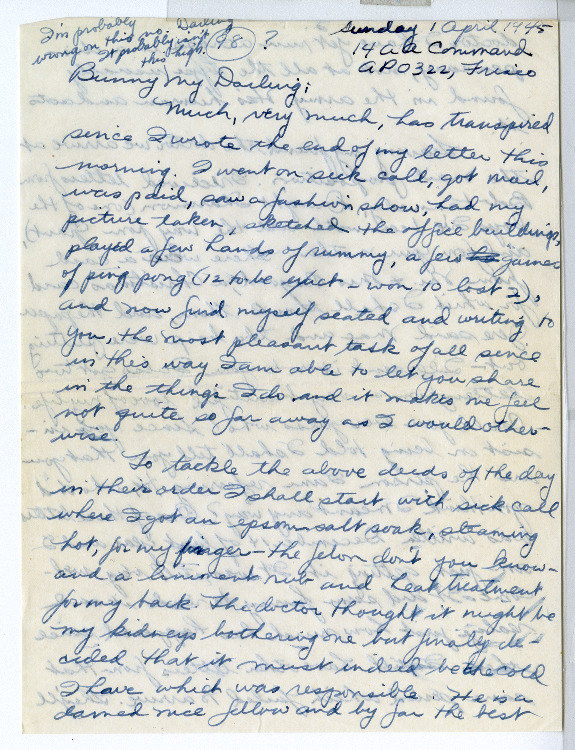 I'm probably Darling
wrong on this no.
It probably isn't
this high!
98 ?
Sunday 1 April 1945
14 AA Command
APO 322, Frisco
Bunny My Darling;
Much, very much, has transpired
since I wrote the end of my letter this
morning. I went on sick call, got mail,
was paid, saw a fashion show, had my
picture taken, sketched the office buildings,
played a few hands of rummy, a few games
of ping pong (12 to be exact - won 10 lost 2),
and now find myself seated and writing to
you, the most pleasant task of all since
in this way I am able to let you share
in the things I do and it makes me feel
not quite so far away as I would other-
wise.
To tackle the above deeds of the day
in their order I shall start with sick call
where I got an epsom salt soak, steaming
hot, for my finger - the felon don't you know -
and a liniment rub and heat treatment
for my back. The doctor thought it might be
my kidneys bothering me but finally de-
cided that it must indeed be the cold
I have which was responsible. He is a
darned nice fellow and by far the best